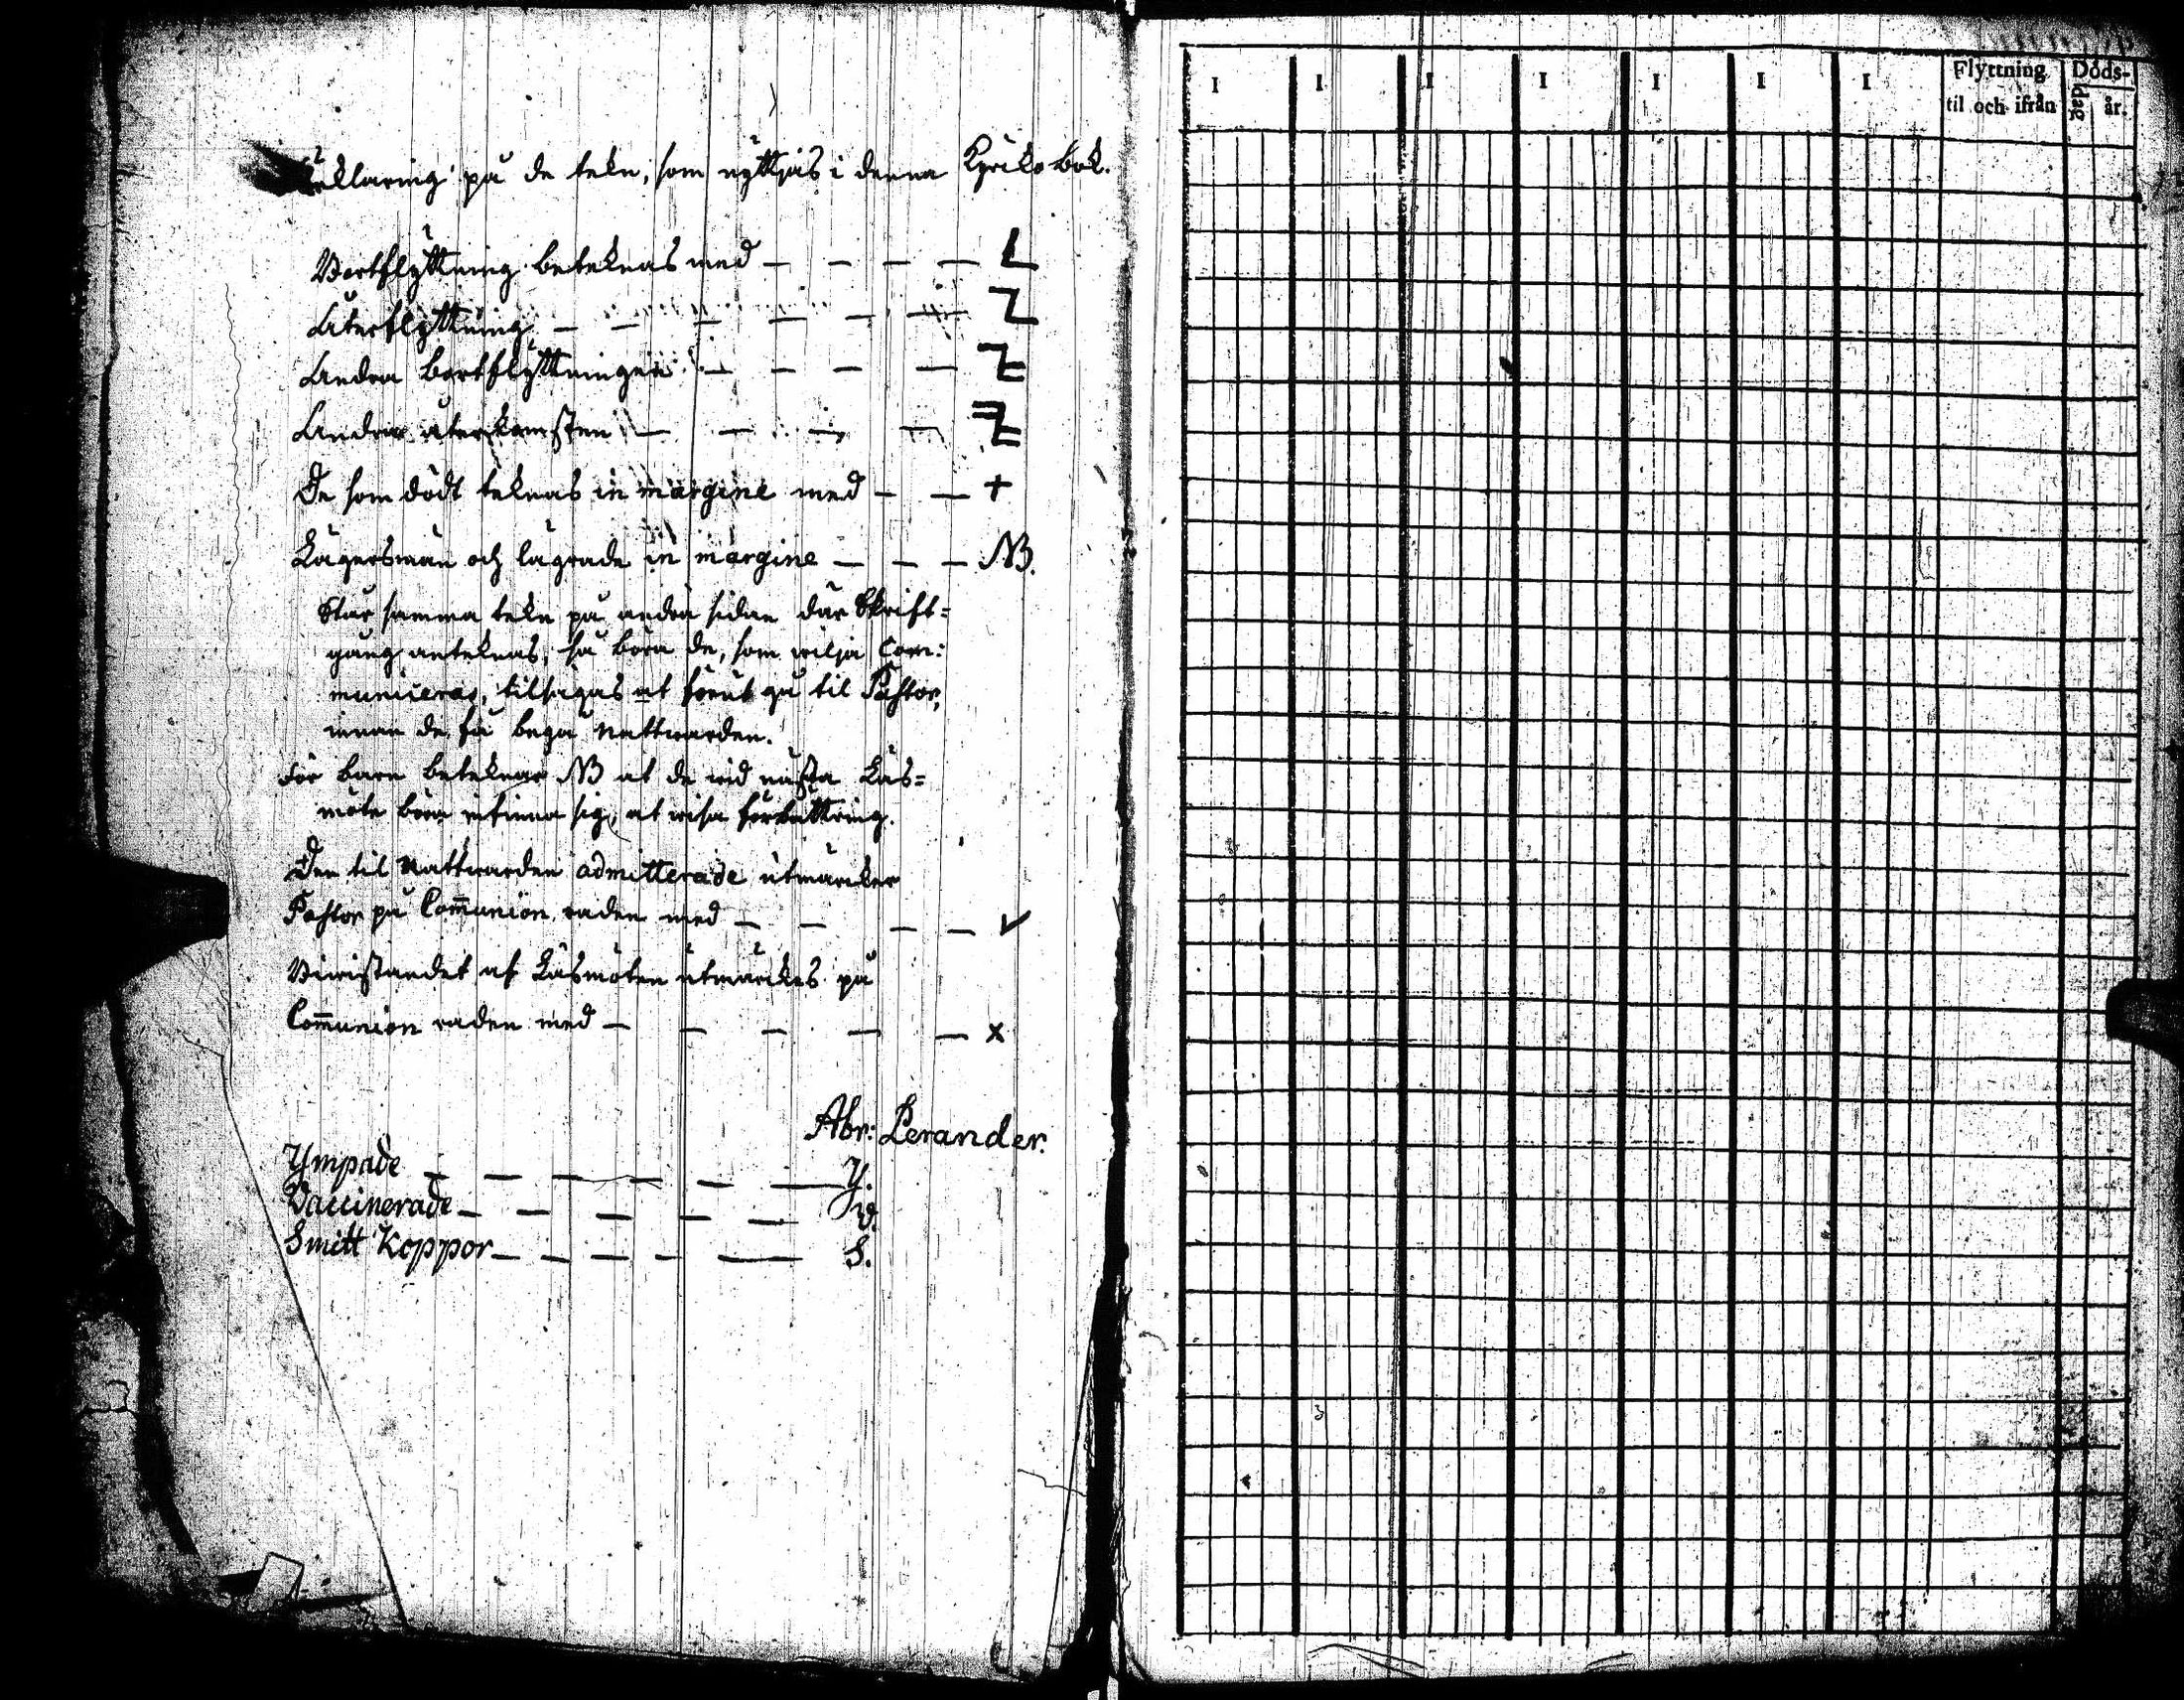 Förklaring på de tekn, som nyttjas i denna Kyrko Bok.
Bortflyttning betecknas med — — — — L
Återflyttning — — — — — —
Andra bortflyttningen — — — —
Andra återkomsten — — — —
De som dödt teknas in margine med — — +
Lägersmän och lägrade in margine — — — NB.
Står samma tekn på andra sidan där Skrift=
gång anteknas, så böra de, som wilja Com:
municeras, tilsägas at förut gå til Pastor,
innan de få begå Nattwarden.
För barn beteknar NB at de wid nästa Läs=
möte böra infinna sig, at wisa förbättring.
Den til Nattwarden admitterade utmärcker
Pastor på Com̅union raden med — — — — ✓
Biwistandet af Läsmöten utmärckes på
Com̅union raden med — — — — — x
Abr: Perander.
Ympade — — — — — — Y.
Vaccinerade — — — — — v.
Smitt Koppor — — — — — S.
I I I I I I I Flyttning Döds-
til och ifrån dag år.